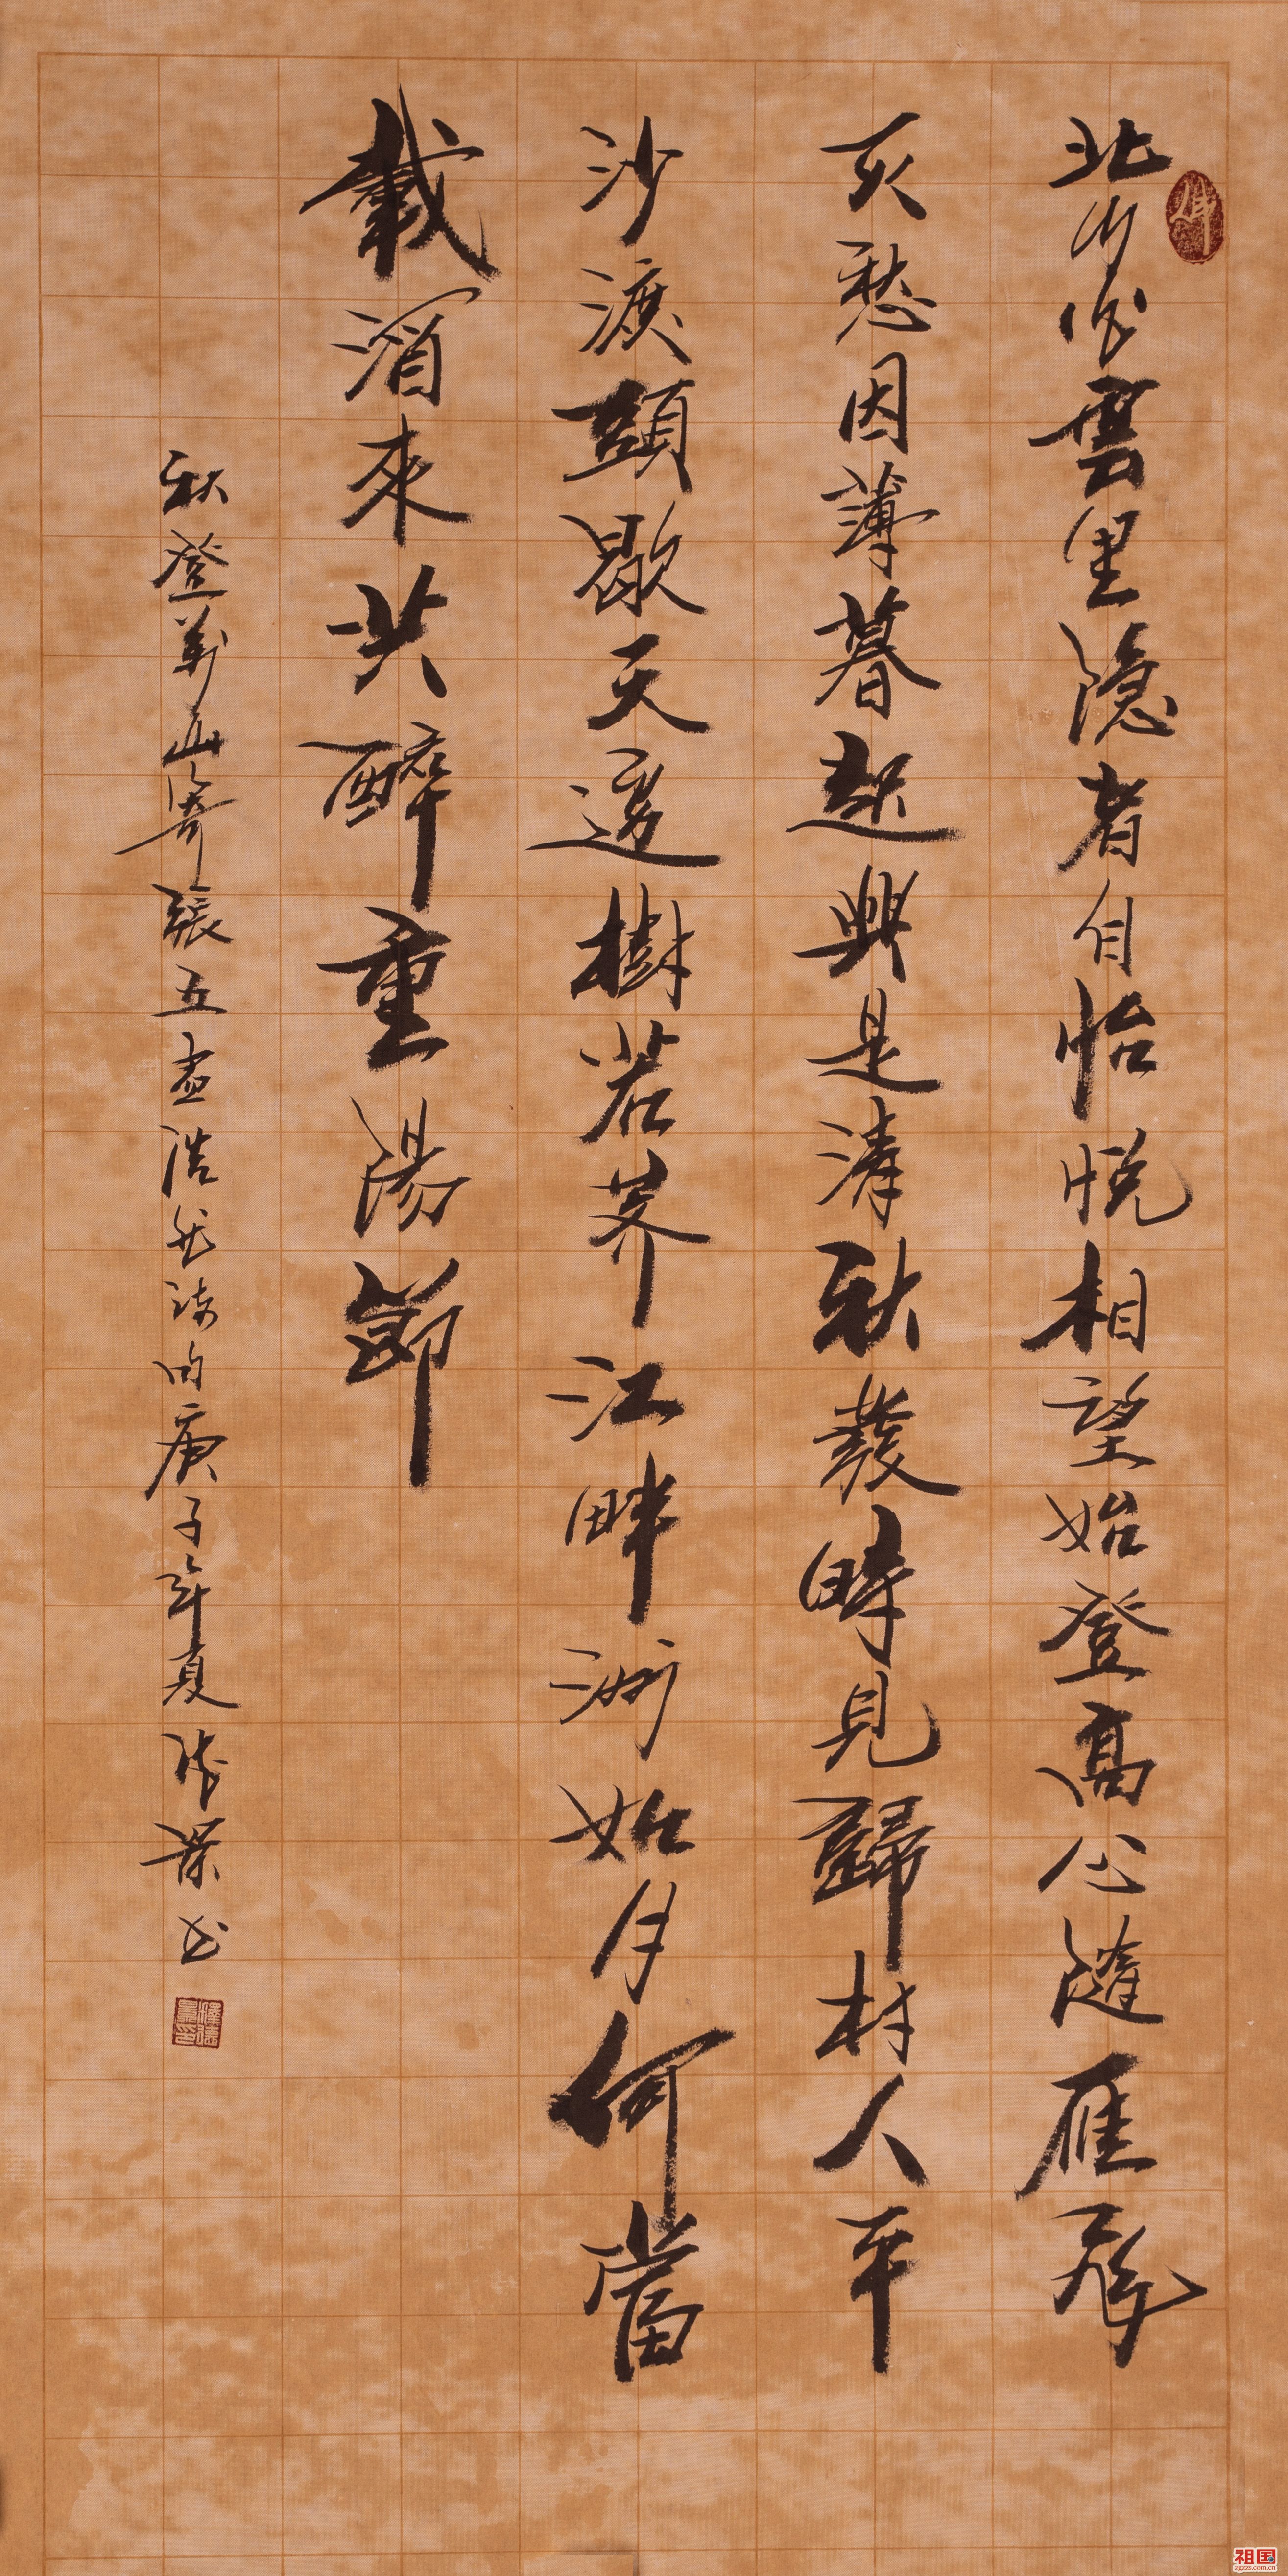 北山白雲里隐者自怡悦相望始登高心隨雁飛
灭愁因薄暮起興是清秋發時見歸村人平
沙渡頭歇天邊樹若荠江畔洲如月何當
載酒來共醉重陽節
秋登萬山寄張五孟浩然诗句庚子年夏书
祖国
zgzzs.com.cn